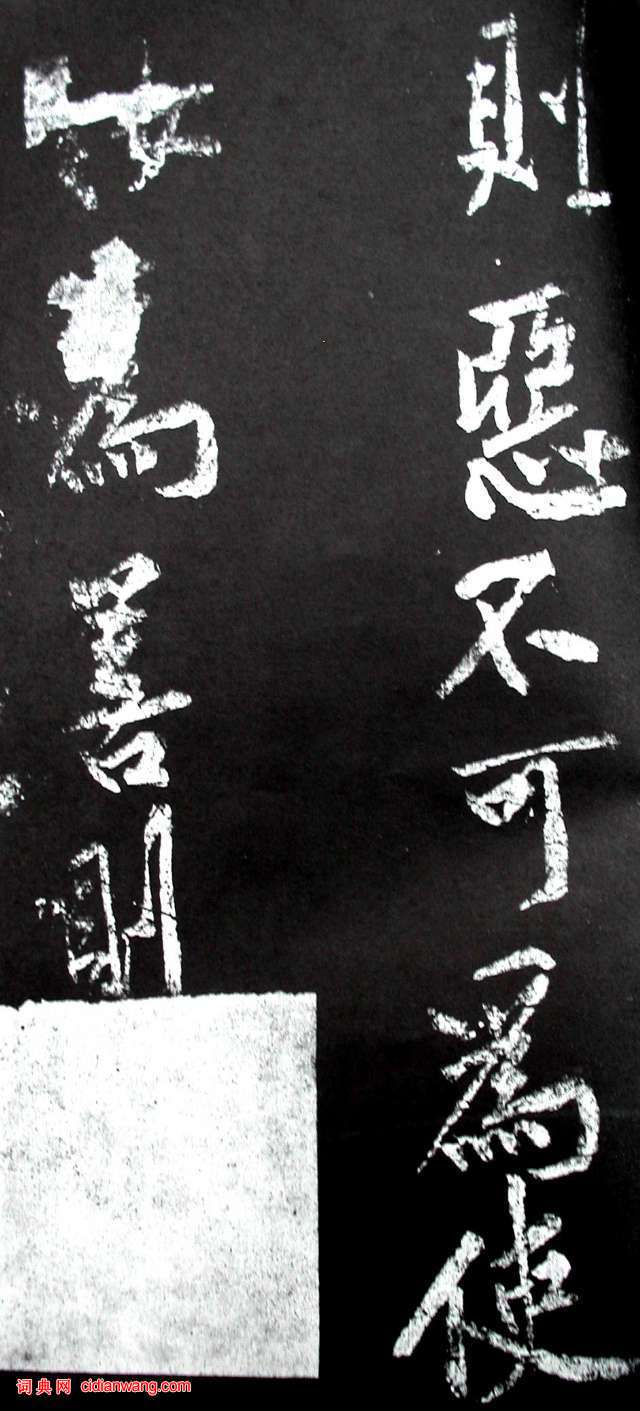 則惡不可爲使
汝爲善則
词典网 cidianwang.com